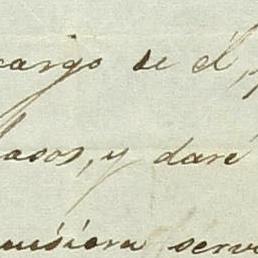 cargo de él, p
casos, y daré
quisiera serv